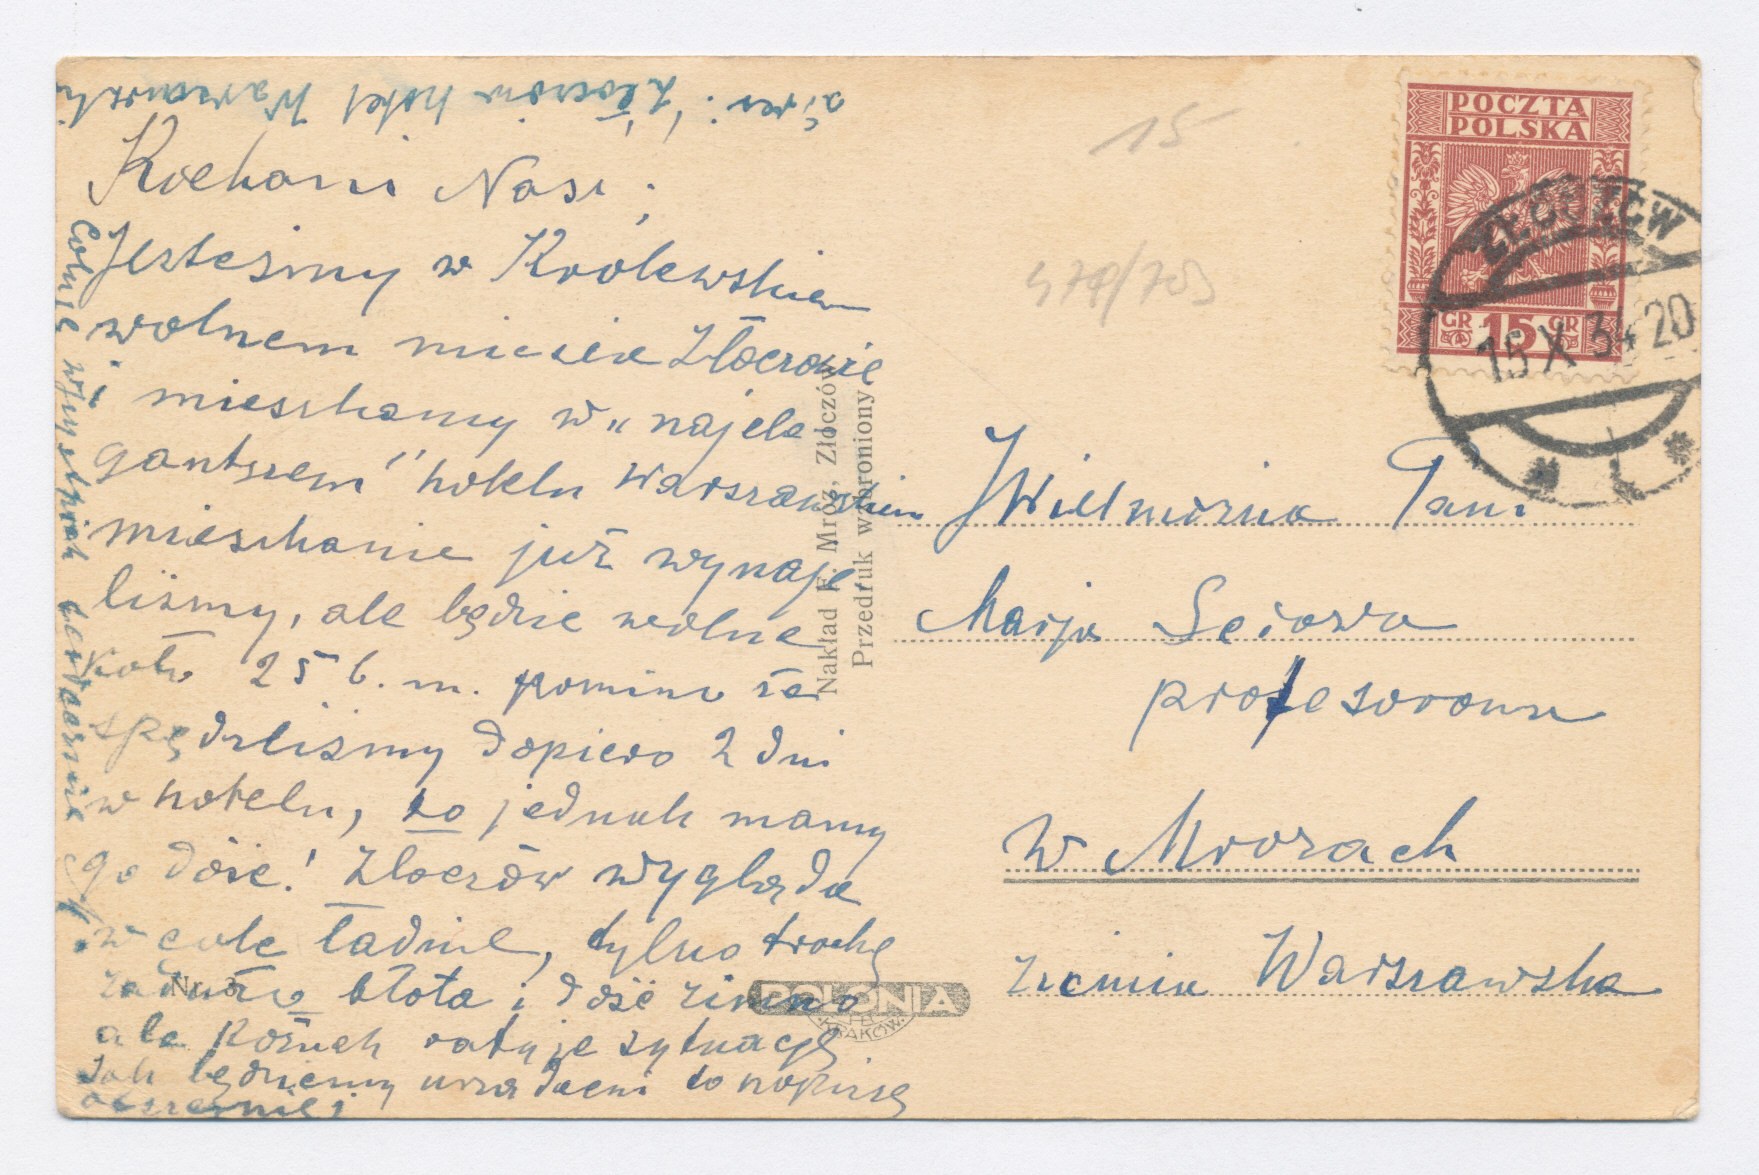 adres: Złoczów hotel Warszawski
Kochani Nasi,
Jesteśmy w Królewskim
wolnem mieście Złoczowie
i mieszkamy w „najele-
gantszem" hotelu Warszawskim
mieszkanie już wynaję-
liśmy, ale będzie wolne
koło 25 b. m. pomimo że
spędziliśmy dopiero 2 dni
w hotelu, to jednak mamy
go dość! Złoczów wygląda
w cale ładnie, tylko trochę
za dużo błota i dość zimno
ale kożuch ratuje sytuację
Jak będziemy urządzeni to napiszę
obszerniej
Całuję wszystkich serdecznie
Nakład F. Mroź, Złoczów
Przedruk wzbroniony
Nr. 3
POLONIA
KRAKÓW
15
470/703
POCZTA
POLSKA
GR 15 GR
ZŁOCZÓW
15 X 34 20
JWielmożna Pani
Marja
profesorowa
w Mrozach
ziemia Warszawska